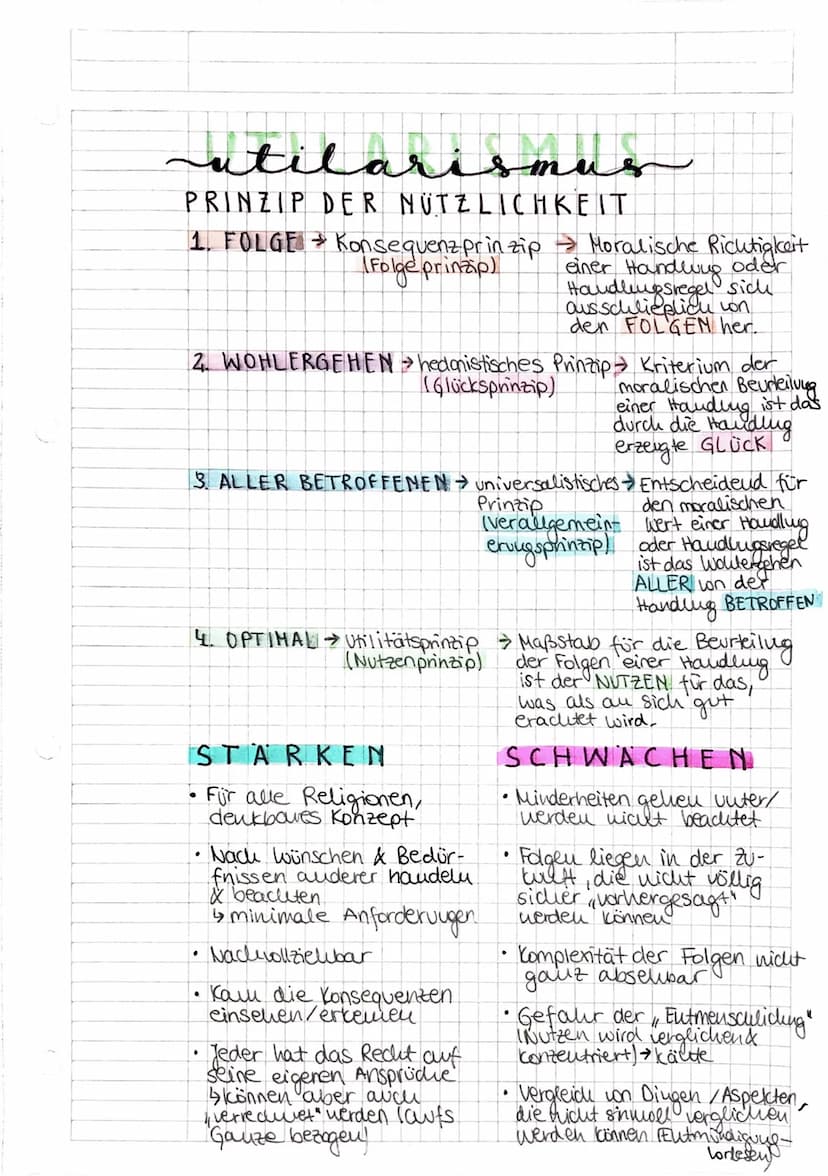 UTILARISMUS
utilarismus
PRINZIP DER NÜTZLICHKEIT
1. FOLGE → Konsequenzprinzip → Moralische Richtigkeit
(Folgeprinzip) einer Handlung oder
Handlungsregel sich
ausschließlich von
den FOLGEN her.
2. WOHLERGEHEN → hedonistisches Prinzip → Kriterium der
(Glücksprinzip) moralischen Beurteilung
einer Handlung ist das
durch die Handlung
erzeugte GLÜCK
3. ALLER BETROFFENEN → universalistisches → Entscheidend für
Prinzip den moralischen
(Verallgemein- Wert einer Handlung
erungsprinzip) oder Handlungsregel
ist das Wohlergehen
ALLER von der
Handlung BETROFFEN
4. OPTIMAL → Utilitätsprinzip → Maßstab für die Beurteilung
(Nutzenprinzip) der Folgen einer Handlung
ist der NUTZEN für das,
was als an sich gut
erachtet wird.
STÄRKEN
• Für alle Religionen,
denkbares Konzept
• Nach Wünschen & Bedür-
fnissen anderer handeln
& beachten
↳ minimale Anforderungen
• Nachvollziehbar
• Kann die Konsequenzen
einsehen/erkennen
• Jeder hat das Recht auf
seine eigenen Ansprüche
↳ können aber auch
"verrechnet" werden (aufs
Ganze bezogen)
SCHWÄCHEN
• Minderheiten gehen unter/
werden nicht beachtet
• Folgen liegen in der Zu-
kunft, die nicht völlig
sicher „vorhergesagt"
werden können
• Komplexität der Folgen nicht
ganz absehbar
• Gefahr der „Entmenschlichung"
(Nutzen wird verglichen &
konzentriert) → kälte
• Vergleich von Dingen / Aspekten,
die nicht sinnvoll verglichen
werden können (Entmündigung-